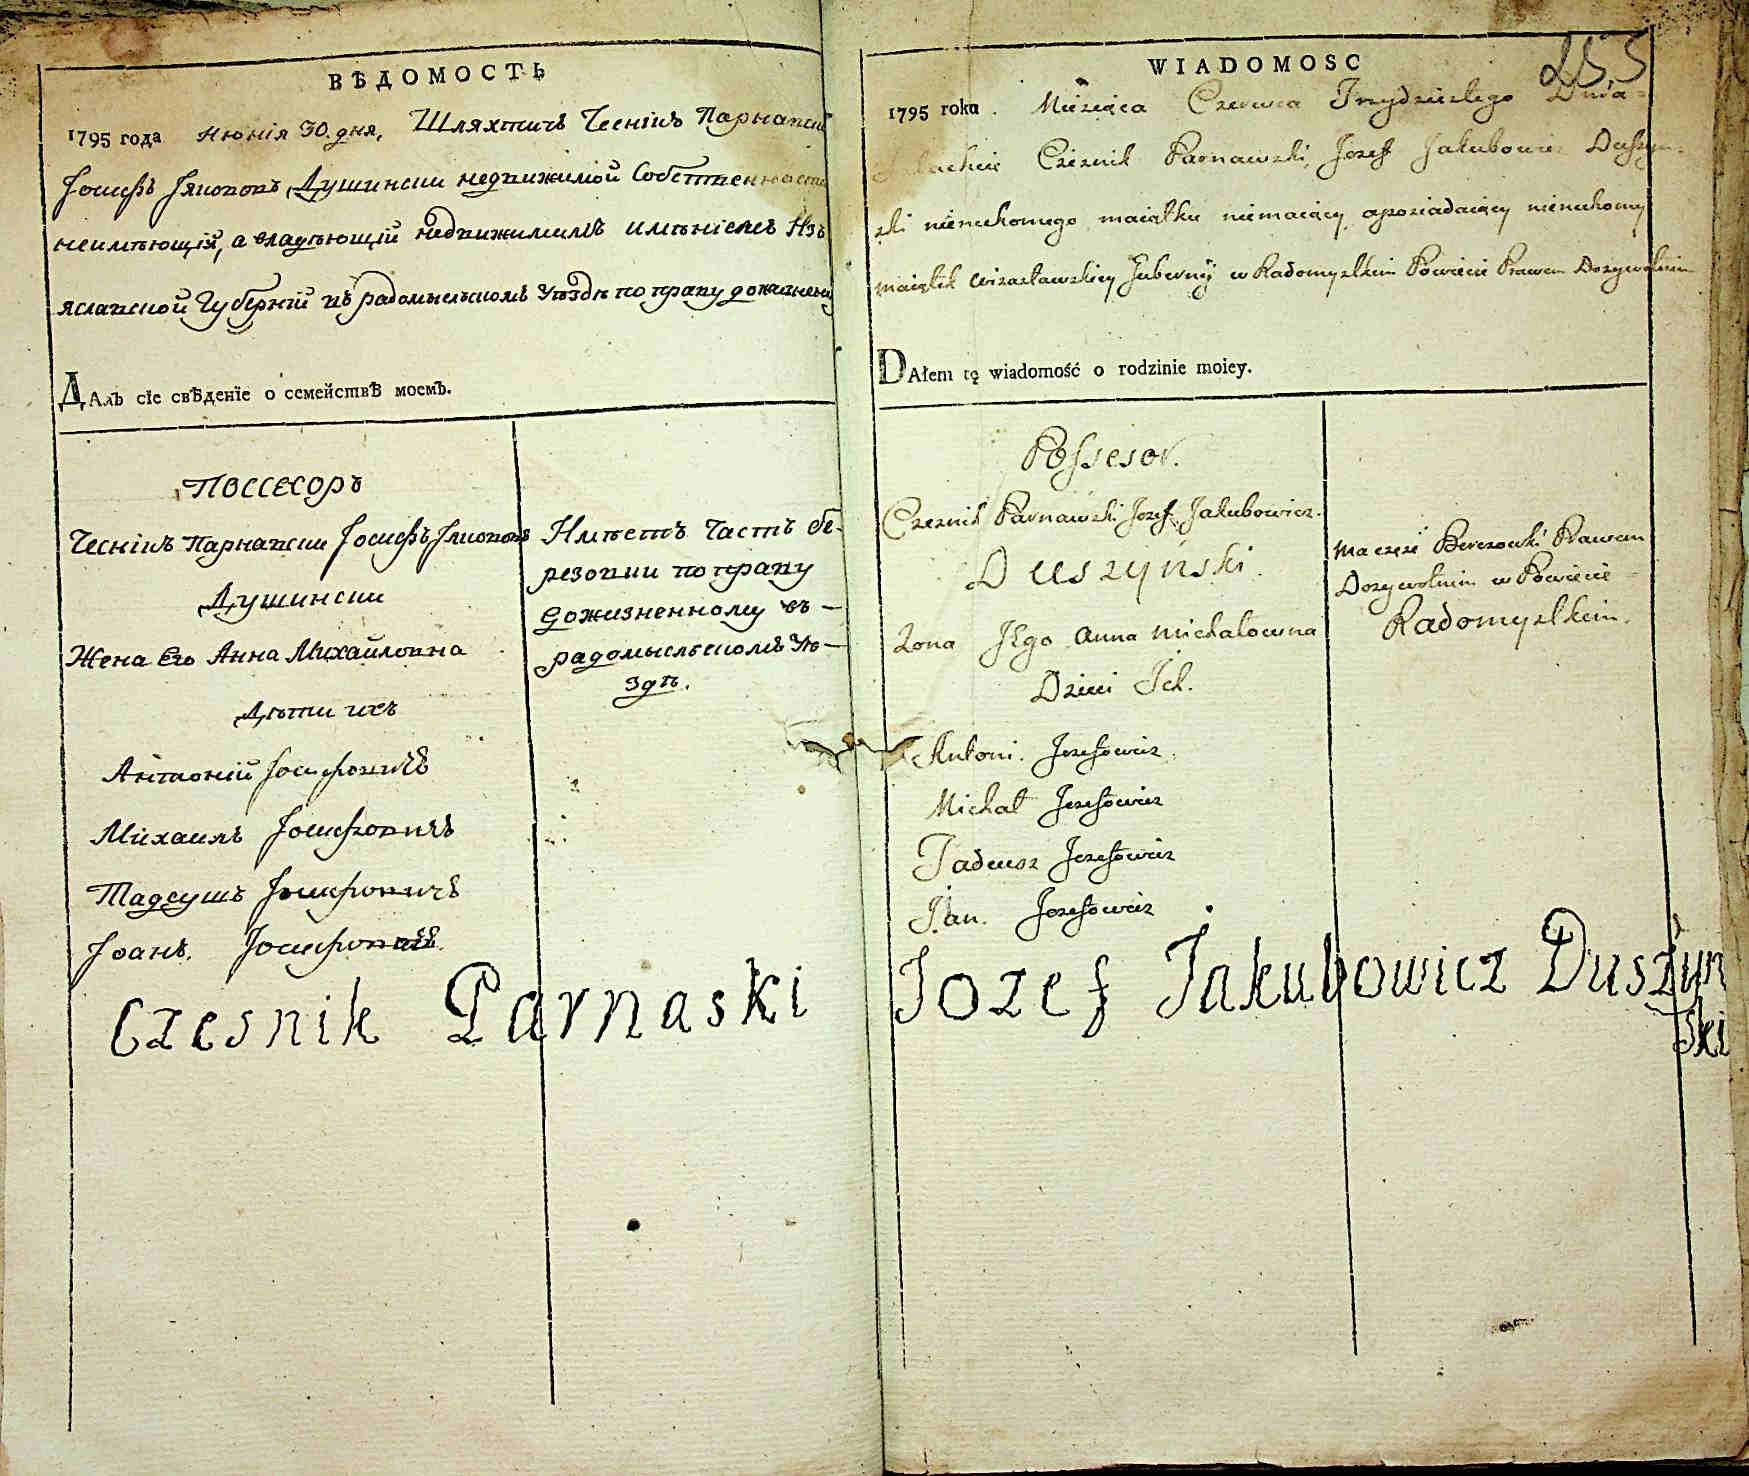 ВѢДОМОСТЬ
1795 года Июнія 30. дня, Шляхтичъ Чеснікъ Парнавски
Іосифъ Якововъ Душински недвижимой Собственности
неимѣющій, а владѣющій недвижимымъ имѣніемъ Изъ
яславской Губерній въ радомысльскомъ Уѣздѣ по праву дожизнену
ДАлъ сіе свѣденіе о семействѣ моемъ.
Поссесоръ
Чеснікъ Парнавски Іосифъ Якововъ
Душински
Жена Его Анна Михайловна
Дѣти ихъ
Антоній Іосифовичъ
Михаилъ Іосифовичъ
Тадеушъ Іосифовичъ
Іоанъ. Іосифовичъ
Имѣетъ Часть бе-
резовки по праву
дожизненному въ —
радомысльскомъ Уѣ—
здѣ.
Czesnik Parnaski
253
WIADOMOSC
1795 roku. Miesiąca Czerwca Trzydziestego Dnia
Szlachcic Czesnik Parnawski, Jozef Jakubowicz Duszyn-
ski nieruchomego maiątku niemaiący, aposiadaiący nieruchomy
maiątek wizasławskiey Gubernÿ w Radomyslkim Powiecie Prawem Dozywotnim
DAłem tę wiadomość o rodzinie moiey.
Possesor.
Czesnik Parnawski Jozef Jakubowicz.
Duszyński.
Zona Jego Anna Michałowna
Dzieci Jch.
Antoni. Jozefowicz.
Michał Jozefowicz
Tadeusz Jozefowicz
Jan. Jozefowicz
Ma część Berezowki Prawem
Dozywotnim w Powiecie
Radomyslkim.
Jozef Jakubowicz Duszyn
ski